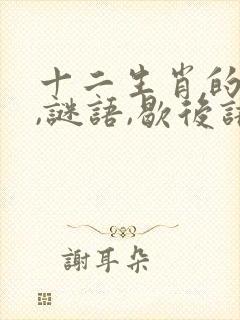 十二生肖的
,謎語,歇後語
謝耳朵